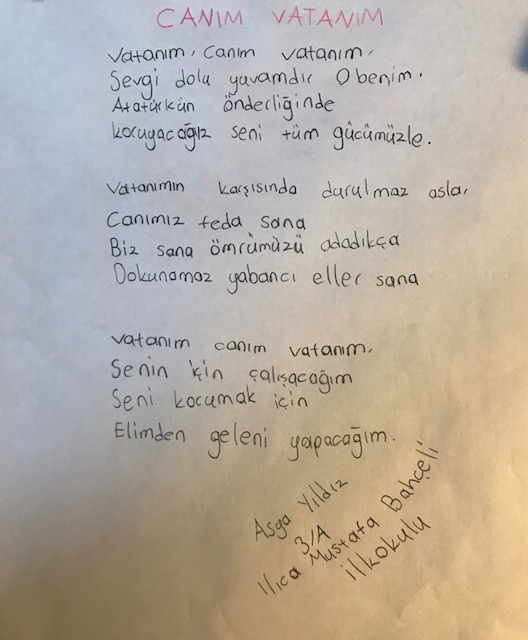 CANIM VATANIM
Vatanım, Canım vatanım,
Sevgi dolu yuvamdır O benim.
Atatürkün önderliğinde
koruyacağız seni tüm gücümüzle.
Vatanımın karşısında durulmaz asla,
Canımız feda sana
Biz sana ömrümüzü adadıkça
Dokunamaz yabancı eller sana
vatanım canım vatanım,
Senin için çalışacağım
Seni korumak için
Elimden geleni yapacağım.
Asya Yıldız
3/A
Ilıca Mustafa Bahçeli
ilkokulu